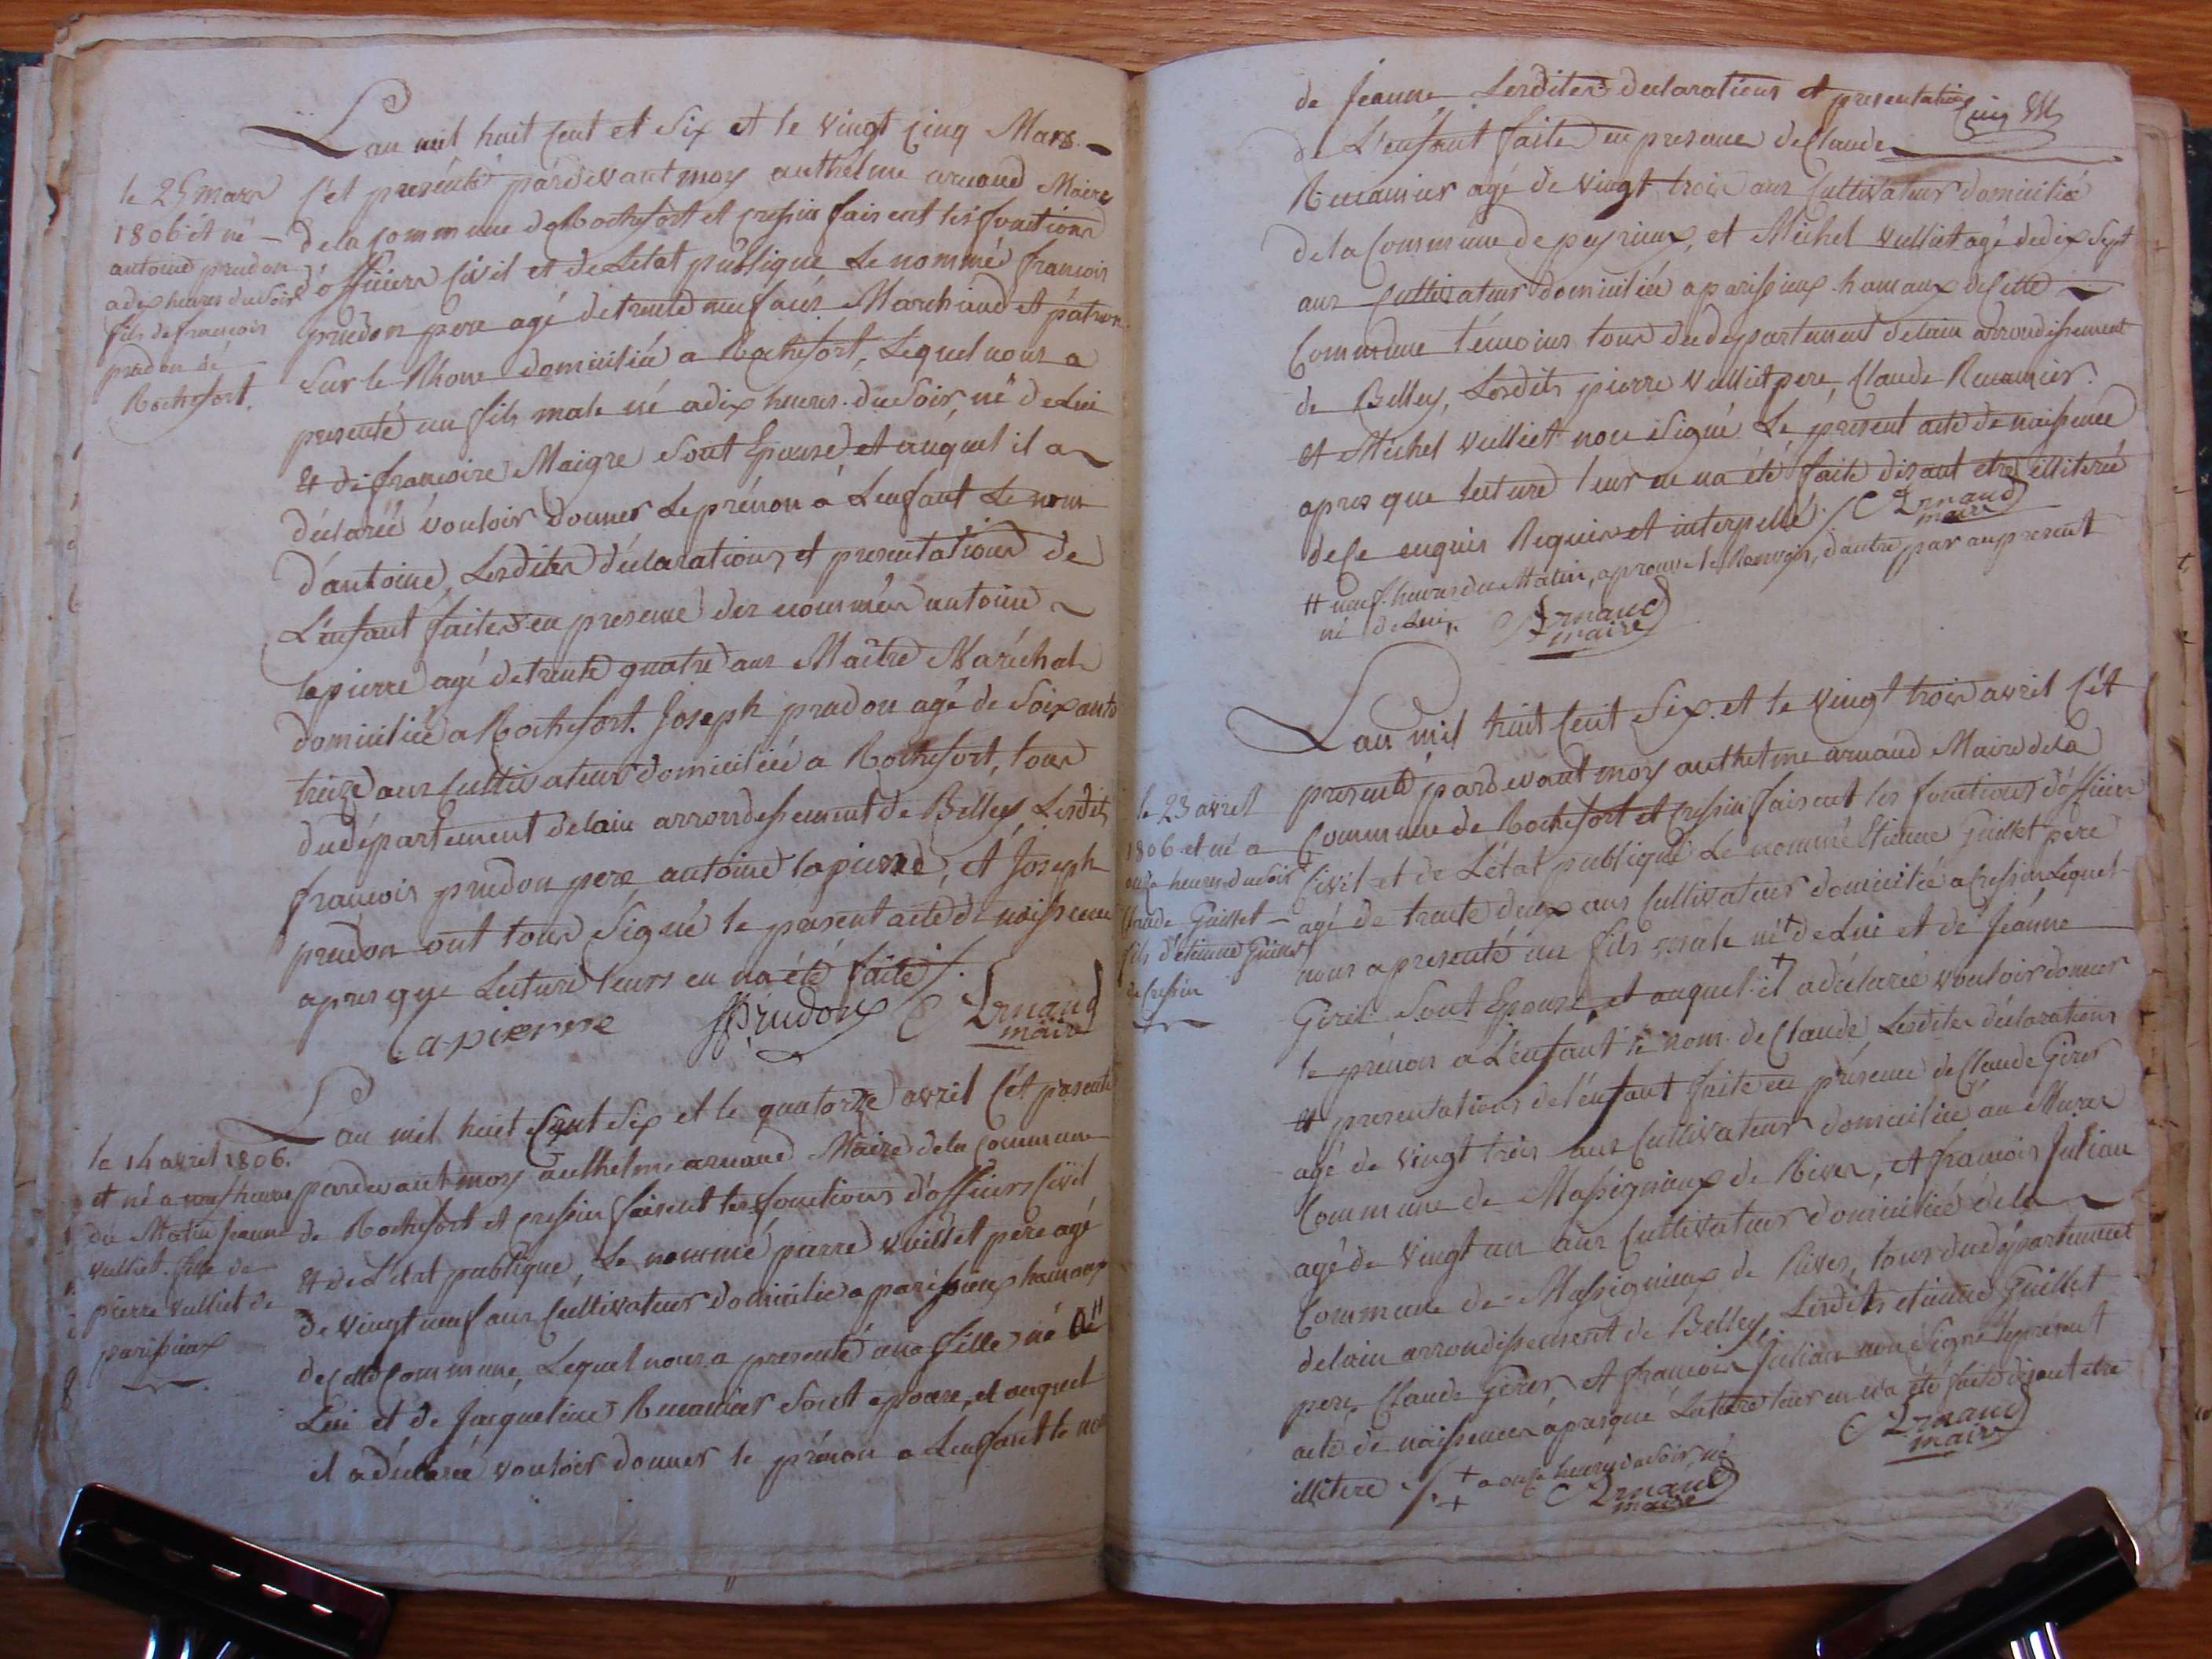 Lan mil huit Cent et Six et le vingt Cinq Mars
le 25 mars
1806 et né
antoine prudon
a dix heures du Soir
fils de francois
prudon de
Rochefort.
C'et presénté pardevant moy anthelme arnaud Maire
de la Commune de Rochefort et Cressin faisent les fonctions
d'officiers Civil et de Letat publique Le nommé francois
prudon pere agé de trente neuf ans Marchand et patron
Sur le Rhone domicilié a Rochefort, Lequel nous a
presenté un fils male né a dix heures du Soir, né de Lui
et de francoise Maigre Sont Epouse et auquel il a
déclarée vouloir donner Le prénon á Lenfant Le nom
d'antoine, Lesdites déclarations et presentations de
L'enfant faites en presence des nommés antoine
lapierre agé de trente quatre ans Maître Maréchal
domiciliée a Rochefort. Joseph prudon agé de Soixante
treize ans Cultivateur domiciliéé a Rochefort, tous
du département delain arrondissement de Belley Lesdits
francois prudon pere antoine lapierre, et Joseph
prudon ont tous Signé le present acte de naissence
apres que Lecture leurs en na été faite /.
Lapierre Prudon Arnaud
maire
Lan mil huit Cent Six et le quatorze avril C'et presenté
le 14 avril 1806.
et né a neuf heures
du Matin Jeanne
vulliet fille de
pierre vulliet de
parissieux
pardevant moy anthelme arnaud Maire de la Commune
de Rochefort et Cressin faisent les fonctions d'officiers Civil
et de Létat publique, Le nommé pierre vulliet pere agé
de vingt neuf ans Cultivateur domicilié a parissieux hamaux
de Cette Commune, Lequel nous a presenté une fille né de #
Lui et de Jacqueline Recamier Sont epouse, et auquel
il a déclarée vouloir donner le prénon a Lenfant le nom
de Jeanne Lesdites declarations et presentations
de L'enfant faites en presence de Claude
Recamier agé de vingt trois ans Cultivateur domiciliée
de la Commune de peyrieux, et Michel vulliet agé de dix Sept
ans Cultivateur domiciliée a parissieux hamaux de Cette
Commune témoins tous du departement delain arrondissement
de Belley, Lesdits pierre vulliet pere, Claude Recamier
et Michel vulliet non Signé Le present acte de naissence
apres que lecture leur en na été faite disant etre illiteré
de Ce enquis Requis et interpellé / Arnaud
maire
# neuf heures du Matin, aprouve le Renvoin, dautre par au present
né de Lui, Arnaud
maire
Lan mil huit Cent Six et le vingt trois avril C'ét
le 23 avril
1806 et né a
onze heures du soir
Claude Guillet
fils d'etienne Guillet
de Cressin
presenté pardevant moy anthelme arnaud Maire de la
Commune de Rochefort et Cressin faisent les fonctions d'officier
Civil et de Létat publique Le nommé Etienne Guillet pere
agé de trente deux ans Cultivateur domiciliée a Cressin Lequel
nous a presenté un fils male né + de Lui et de Jeanne
Girel Sont Epouse, et auquel il a déclarée vouloir donner
le prénon a L'enfant le nom de Claude, Lesdites déclarations
et presentations de l'enfant faite en présence de Claude Girer
agé de vingt trois ans Cultivateur domiciliée au Mures
Commune de Massignieux de Rives, et francois Julian
agé de vingt un ans Cultivateur domiciliéé de la
Commune de Massignieux de Rives, tous du département
delain arrondissement de Belley, Lesdits etienne Guillet
pere, Claude Girer, et francois Julian non Signé le présent
acte de naissences apresque Lecture leur en na été faite disant etre
illitere /. + a onze heures du Soir, né Arnaud
maire
+ Arnaud
maire